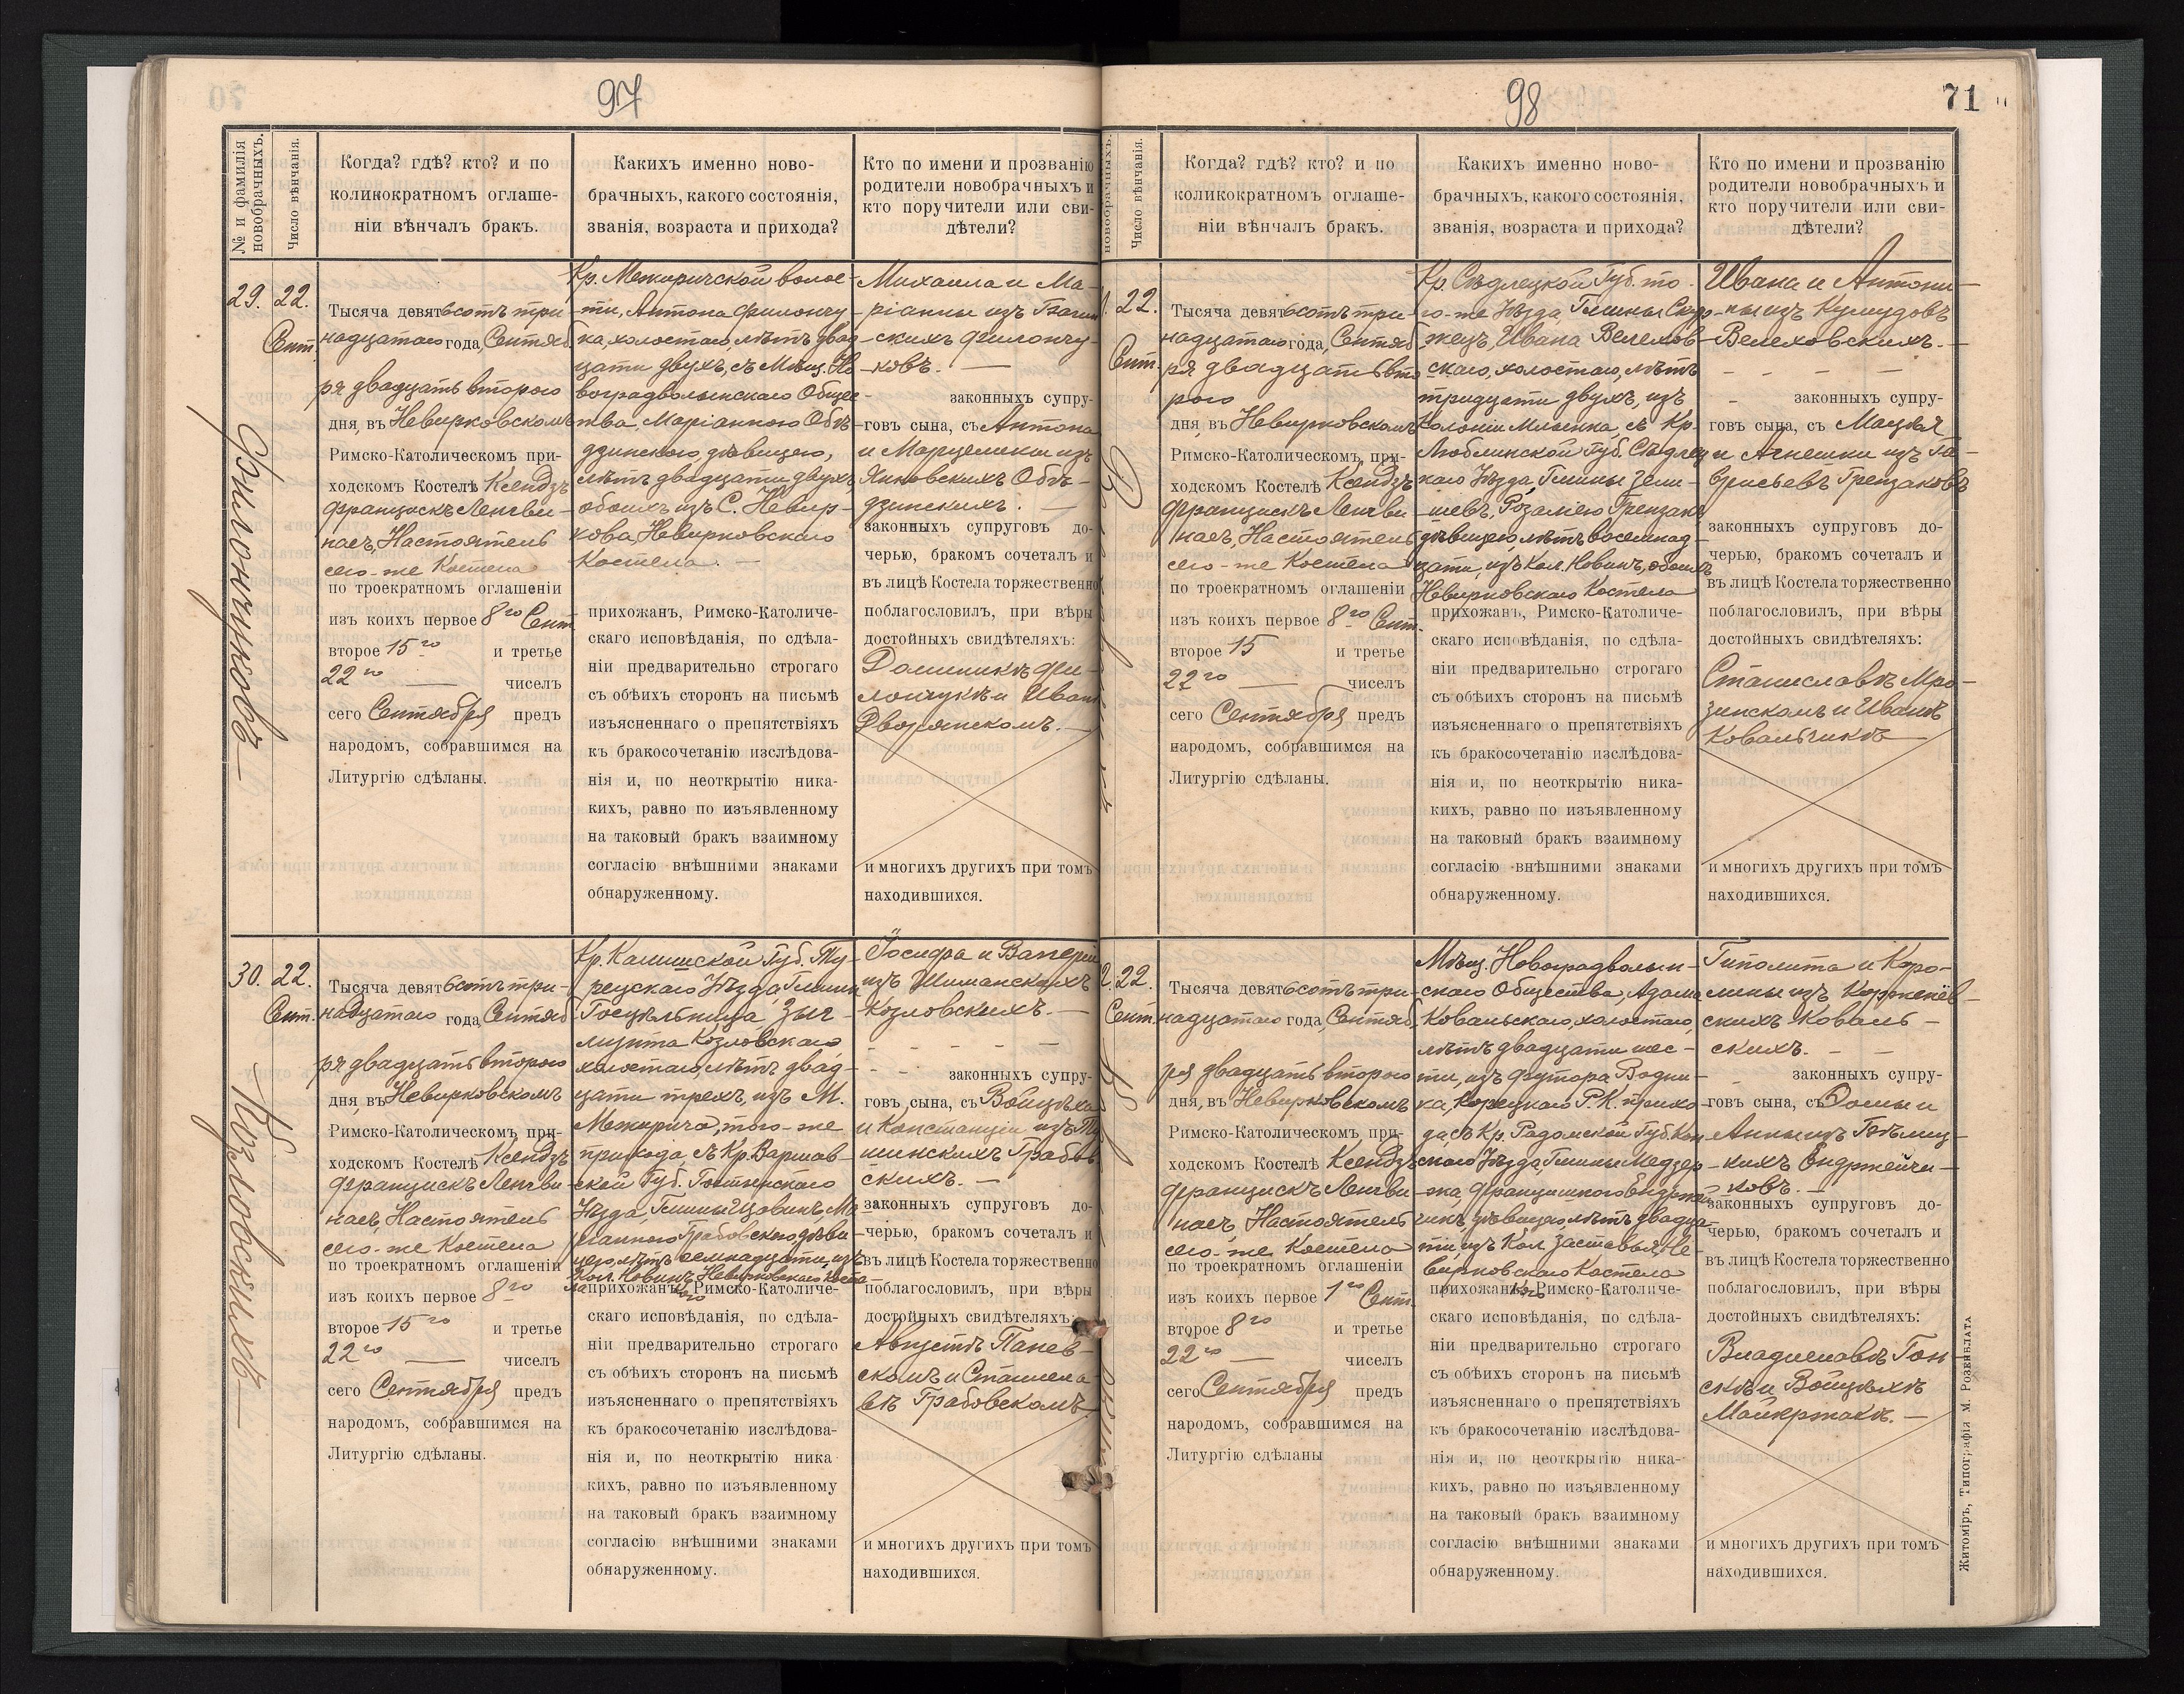 97
№ и фамилія новобрачныхъ.
Число вѣнчанія.
Когда? гдѣ? кто? и по
коликократномъ оглаше-
ніи вѣнчалъ бракъ.
Какихъ именно ново-
брачныхъ, какого состоянія,
званія, возраста и прихода?
Кто по имени и прозванію
родители новобрачныхъ и
кто поручители или сви-
дѣтели?
29.
Филончуковъ
22.
Сент.
Тысяча девятьсотъ три-
надцатаго года, Сентяб
ря двадцать второго
дня, въ Невирковскомъ
Римско-Католическомъ при-
ходскомъ Костелѣ Ксендзъ
Францискъ Ленгви-
насъ, Настоятель
сего-же Костела
по троекратномъ оглашеніи
изъ коихъ первое 8го Сент.
второе 15го и третье
22го — чиселъ
сего Сентября предъ
народомъ, собравшимся на
Литургію сдѣланы.
Кр. Межиричской волос-
ти, Антона Филончу-
ка, холостаго, лѣтъ двад-
цати двухъ, съ Мѣщ. Но-
воградволынскаго Общес-
тва, Маріанною Объ-
дзинскою, дѣвицею,
лѣтъ двадцати двухъ,
обоихъ изъ С. Невир-
кова, Невирковскаго
Костела. —
прихожанъ, Римско-Католиче-
скаго исповѣданія, по сдѣла-
ніи предварительно строгаго
съ обѣихъ сторонъ на письмѣ
изъясненнаго о препятствіяхъ
къ бракосочетанію изслѣдова-
нія и, по неоткрытію ника-
кихъ, равно по изъявленному
на таковый бракъ взаимному
согласію внѣшними знаками
обнаруженному.
Михаила и Ма-
ріанны изъ
скихъ Филончу-
ковъ. —
законныхъ супру-
говъ сына, съ Антона
и Марцелины изъ
Яновскихъ Объ-
дзинскихъ. —
законныхъ супруговъ до-
черью, бракомъ сочеталъ и
въ лицѣ Костела торжественно
поблагословилъ, при вѣры
достойныхъ свидѣтеляхъ:
Доминикѣ Фи-
лончукѣ и Иванѣ
Дворянскомъ. —
и многихъ другихъ при томъ
находившихся.
30.
Козловскихъ
22.
Сент.
Тысяча девятьсотъ три-
надцатаго года, Сентяб
ря двадцать второго
дня, въ Невирковскомъ
Римско-Католическомъ при-
ходскомъ Костелѣ Ксендзъ
Францискъ Ленгви-
насъ, Настоятель
сего-же Костела
по троекратномъ оглашеніи
изъ коихъ первое 8го
второе 15го и третье
22го — чиселъ
сего Сентября предъ
народомъ, собравшимся на
Литургію сдѣланы.
Кр. Калишской Губ. Ту-
рецскаго Уѣзда, Гмины
Зыг-
мунта Козловскаго,
холостаго, лѣтъ двад-
цати трехъ, изъ М.
Межирича, того-же
прихода съ Кр. Варшав-
ской Губ. Гостынскаго
Уѣзда, Гмины Щовинъ, Ма-
ріанною Грабовскою, дѣви-
цею, лѣтъ семнадцати, изъ
Кол. Новинъ, Невирковскаго Косте-
ла прихожанъ, Римско-Католиче-
скаго исповѣданія, по сдѣла-
ніи предварительно строгаго
съ обѣихъ сторонъ на письмѣ
изъясненнаго о препятствіяхъ
къ бракосочетанію изслѣдова-
нія и, по неоткрытію ника-
кихъ, равно по изъявленному
на таковый бракъ взаимному
согласію внѣшними знаками
обнаруженному.
Іосифа и Валеріи
изъ Шиманскихъ
Козловскихъ. —
законныхъ супру-
говъ сына, съ Войцѣха
и Констанціи изъ
шинскихъ Грабов-
скихъ. —
законныхъ супруговъ до-
черью, бракомъ сочеталъ и
въ лицѣ Костела торжественно
поблагословилъ, при вѣры
достойныхъ свидѣтеляхъ:
Августѣ Панев-
скомъ и Станисла-
вѣ Грабовскомъ
и многихъ другихъ при томъ
находившихся.
98
71
новобрачныхъ.
Число вѣнчанія.
Когда? гдѣ? кто? и по
коликократномъ оглаше-
ніи вѣнчалъ бракъ.
Какихъ именно ново-
брачныхъ, какого состоянія,
званія, возраста и прихода?
Кто по имени и прозванію
родители новобрачныхъ и
кто поручители или сви-
дѣтели?
22.
Сент.
Тысяча девятьсотъ три-
надцатаго года, Сентяб
ря двадцать вто
рого
дня, въ Невирковскомъ
Римско-Католическомъ при-
ходскомъ Костелѣ Ксендзъ
Францискъ Ленгви-
насъ, Настоятель
сего-же Костела
по троекратномъ оглашеніи
изъ коихъ первое 8го Сент.
второе 15 и третье
22го — чиселъ
сего Сентября предъ
народомъ, собравшимся на
Литургію сдѣланы.
Кр. Сѣдлецкой Губ. то-
го-же Уѣзда, Гмины Скур-
жецъ, Ивана Велехов-
скаго, холостаго, лѣтъ
тридцати двухъ, изъ
Колоніи Млынка, съ Кр.
Люблинской Губ. Сѣдлец-
каго Уѣзда, Гмины Зели-
шевъ, Розаліею Грензакъ
дѣвицею, лѣтъ восемнад-
цати, изъ Кол. Новинъ, обоихъ
Невирковскаго Костела
прихожанъ, Римско-Католиче-
скаго исповѣданія, по сдѣла-
ніи предварительно строгаго
съ обѣихъ сторонъ на письмѣ
изъясненнаго о препятствіяхъ
къ бракосочетанію изслѣдова-
нія и, по неоткрытію ника-
кихъ, равно по изъявленному
на таковый бракъ взаимному
согласію внѣшними знаками
обнаруженному.
Ивана и Антони-
ны изъ Кумудовъ
Велеховскихъ. —
законныхъ супру-
говъ сына, съ Мацѣя
и Агнешки изъ Га-
врисьевъ Грензаковъ
законныхъ супруговъ до-
черью, бракомъ сочеталъ и
въ лицѣ Костела торжественно
поблагословилъ, при вѣры
достойныхъ свидѣтеляхъ:
Станиславѣ Мро-
зинскомъ и Иванѣ
Ковальчикѣ
и многихъ другихъ при томъ
находившихся.
22.
Сент.
Тысяча девятьсотъ три-
надцатаго года, Сентяб
ря двадцать второго
дня, въ Невирковскомъ
Римско-Католическомъ при-
ходскомъ Костелѣ Ксендзъ
Францискъ Ленгви-
насъ, Настоятель
сего-же Костела
по троекратномъ оглашеніи
изъ коихъ первое 1го Сент.
второе 8го и третье
22го — чиселъ
сего Сентября предъ
народомъ, собравшимся на
Литургію сдѣланы
Мѣщ. Новоградволын-
скаго Общества, Адама
Ковальскаго, холостаго,
лѣтъ двадцати шес-
ти, изъ Футора Водни-
ка, Корецкаго Р. К. прихо-
да, съ Кр. Радомской Губ. Кон-
скаго Уѣзда, Гмины Медзер-
жа, Францишкою Енджей-
чикъ, дѣвицею, лѣтъ двадца-
ти, изъ Кол. Заставья, Не-
вирковскаго Костела
прихожанъ, Римско-Католиче-
скаго исповѣданія, по сдѣла-
ніи предварительно строгаго
съ обѣихъ сторонъ на письмѣ
изъясненнаго о препятствіяхъ
къ бракосочетанію изслѣдова-
нія и, по неоткрытію ника-
кихъ, равно по изъявленному
на таковый бракъ взаимному
согласію внѣшними знаками
обнаруженному.
Гиполита и Каро-
лины изъ Корженёв-
скихъ Коваль-
скихъ. —
законныхъ супру-
говъ сына, съ Ѳомы и
Анны изъ
кихъ Енджейчи-
ковъ. —
законныхъ супруговъ до-
черью, бракомъ сочеталъ и
въ лицѣ Костела торжественно
поблагословилъ, при вѣры
достойныхъ свидѣтеляхъ:
Владиславѣ Гон-
скѣ и Войцѣхѣ
Майкржакѣ. —
и многихъ другихъ при томъ
находившихся.
Житоміръ, Типографія М. Розенблата